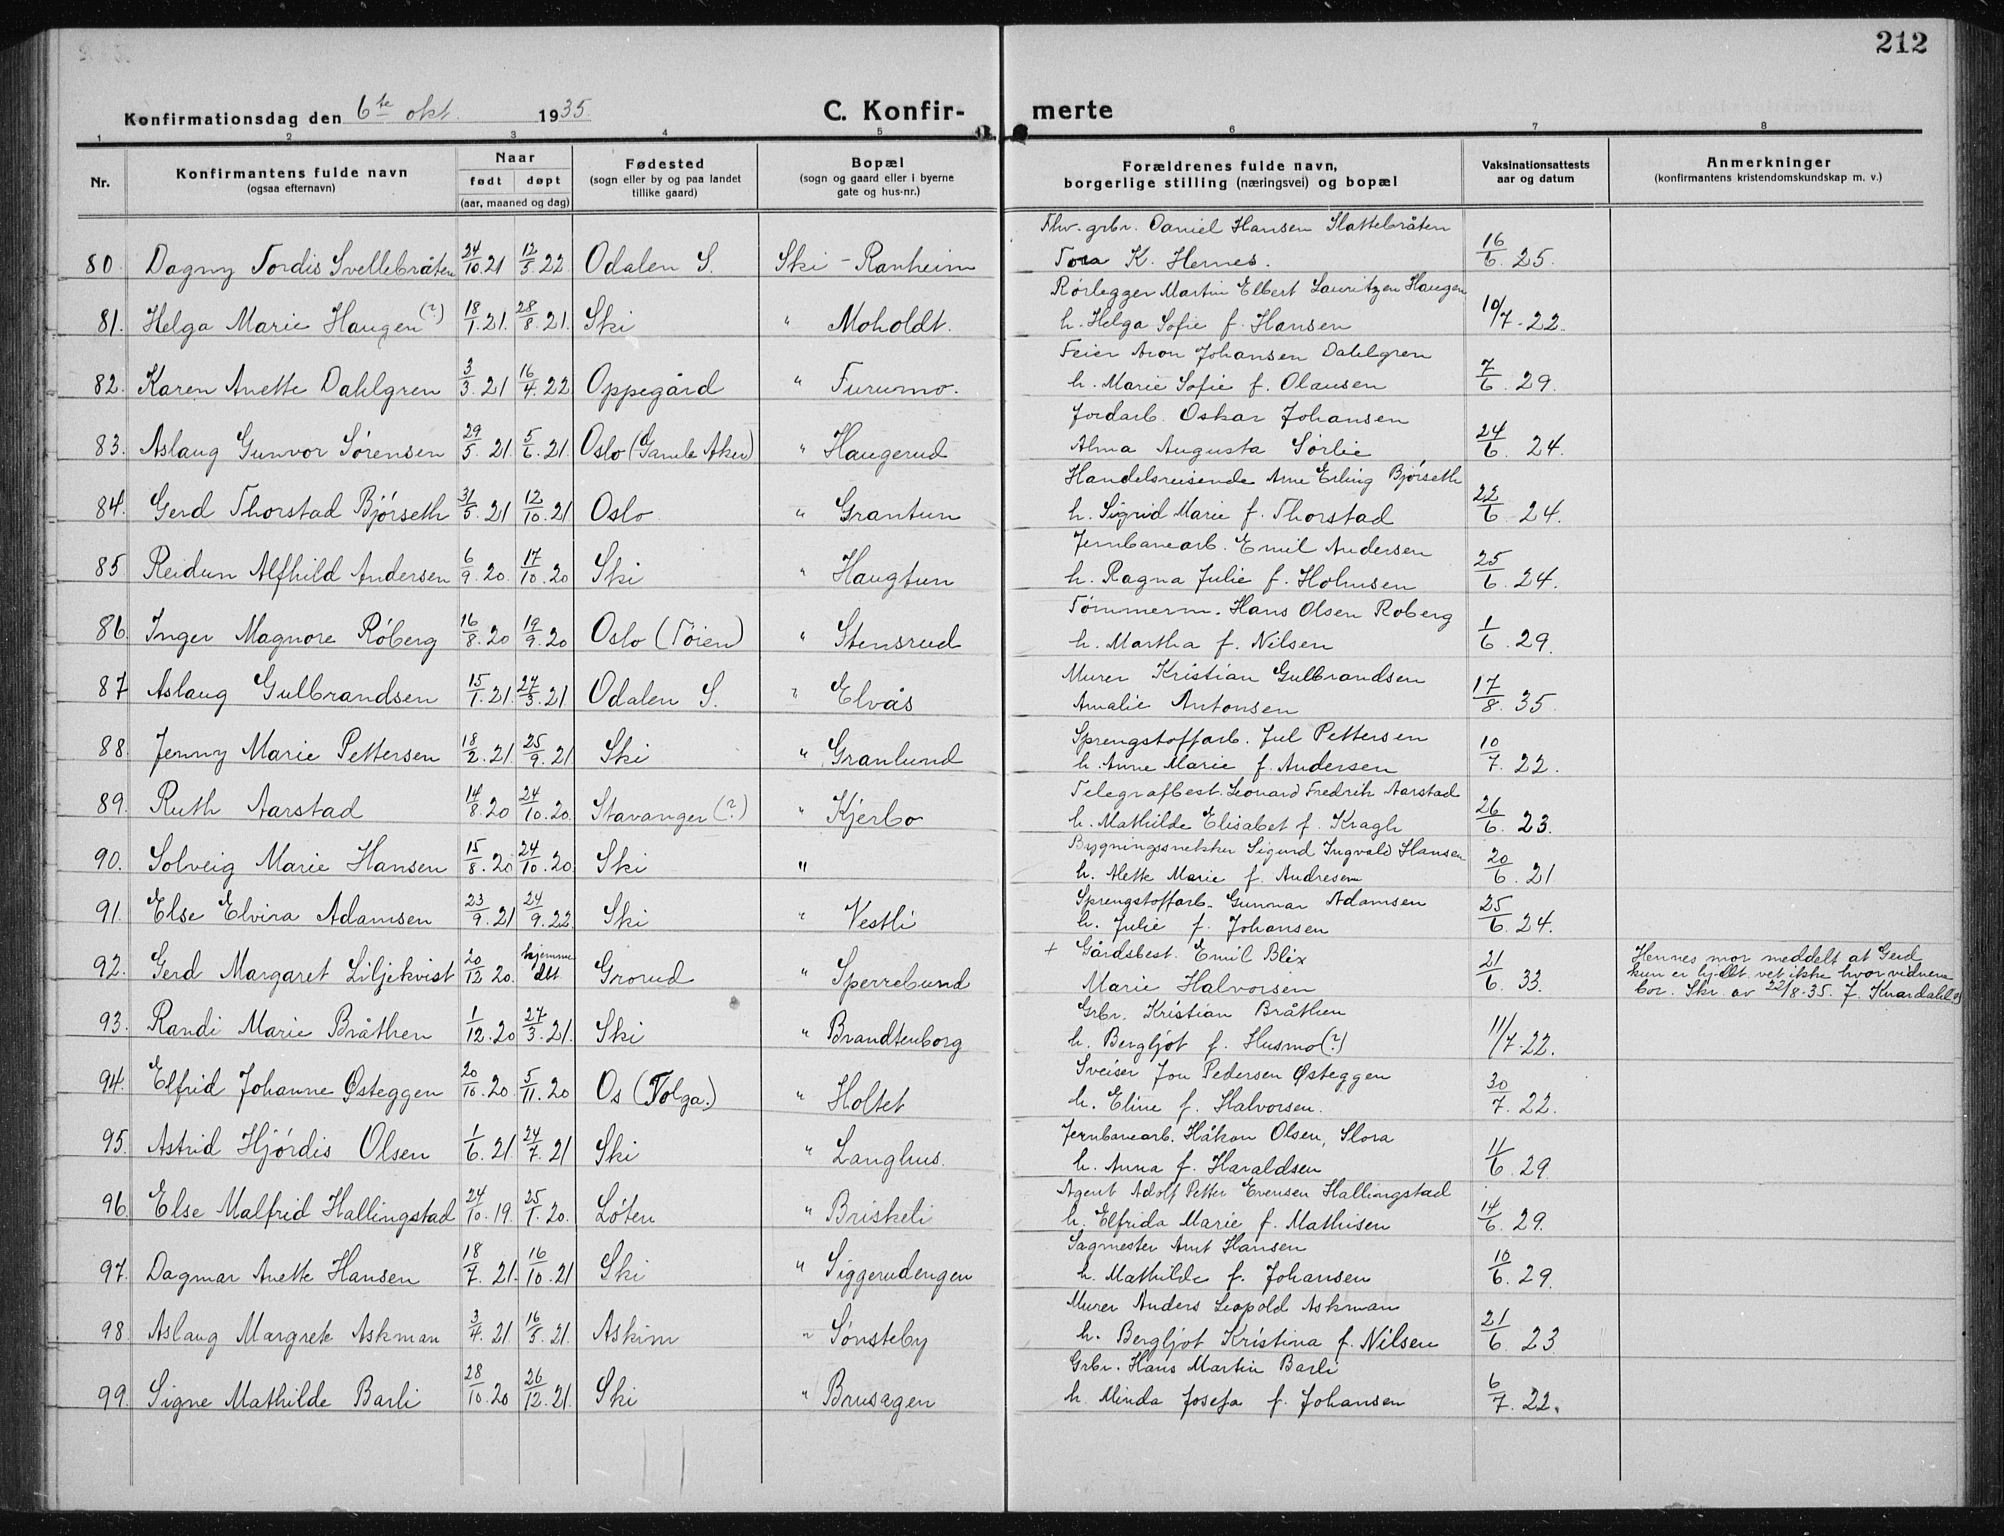 212
Konfirmationsdag den 6te okt. 1935.
C. Konfir- merte
1 2 3 4 5 6 7 8
Nr.
Konfirmantens fulde navn
(ogsaa efternavn)
Naar
født døpt
(aar, maaned og dag)
Fødested
(sogn eller by og paa landet
tillike gaard)
Bopæl
(sogn og gaard eller i byerne
gate og hus-nr.)
Forældrenes fulde navn,
borgerlige stilling (næringsvei) og bopæl
Vaksinationsattests
aar og datum
Anmerkninger
(konfirmantens kristendomskundskap m. v.)
Fhv. grbr. Daniel Hansen Slattebråten
80. Dagny Tordis Svellebråten 24/10.21 12/5.22 Odalen S. Ski - Ranheim Tora K. Hernes. 16/6.25.
Rørlegger Martin Elbert Lauritzen Haugen
81. Helga Marie Haugen (?) 18/1.21. 28/8.21. Ski " Moholdt. h. Helga Sofie f. Hansen 10/7.22.
Feier Aron Johansen Dahlgren
82. Karen Anette Dahlgren 3/3.21 16/4.22 Oppegård " Furumo. h. Marie Sofie f. Olausen 7/6.29.
Jordarb. Oskar Johansen
83. Aslaug Gunvor Sørensen 29/5.21. 5/6.21. Oslo (Gamle Aker) " Haugerud Alma Augusta Sørlie 24/6.24.
Handelsreisende Arne Erling Bjørseth
84. Gerd Thorstad Bjørseth 31/5.21 12/10.21 Oslo " Grantun h. Sigrid Marie f. Thorstad 22/6.24.
Jernbanearb. Emil Andersen
85 Reidun Alfhild Andersen 6/9.20. 17/10.20 Ski " Haugtun h. Ragna Julie f. Holmsen 25/6.24.
Tømmerm. Hans Olsen Roberg
86. Inger Magnore Róberg 16/8.20 19/9.20 Oslo (Tøien) " Stensrud h. Martha f. Nilsen 1/6.29.
Murer Kristian Gulbrandsen
87 Aslaug Gulbrandsen 15/1.21. 27/3.21 Odalen S. " Elvås Amalie Antonsen 17/8.35.
Sprengstoffarb. Jul Pettersen
88. Jenny Marie Pettersen 18/2.21 25/9.21 Ski " Granlund h. Anne Marie f. Andersen 10/7.22.
Telegrafbest. Leonard Fredrik Aarstad
89. Ruth Aarstad 14/8.20 24/10.20. Stavanger (?) " Kjerbo h. Mathilde Elisabet f. Kragh 26/6.23.
Bygningssnekker Sigurd Ingvald Hansen
90. Solveig Marie Hansen 15/8.20 24/10.20 Ski " h. Alette Marie f. Andresen 20/6.21
Sprengstoffarb. Gunnar Adamsen
91. Else Elvira Adamsen 23/9.21 24/9.22 Ski " Vestli h. Julie f. Johansen 25/6.24.
+ Gårdsbest. Emil Blix
92. Gerd Margaret Liljekvist 20/12 20. hjemme døt Grorud " Sperrebund Marie Halvorsen 21/6.33.
Hennes mor meddelt at Gerd
kun er hj.døt. vet ikke hvor vidnene
bor. Skr. av 22/8.35. J. Kvardahl
Grbr. Kristian Bråthen
93. Randi Marie Bråthen 1/12.20 27/3.21. Ski " Brandtenborg h. Bergljot f. Husmo (?) 11/7.22.
Sveiser Jon Pedersen Østeggen
94. Elfrid Johanne Østeggen 20/10.20 5/11.20 Os (Tolga.) " Holtet h. Eline f. Halvorsen. 30/7.22.
Jernbanearb. Håkon Olsen, Slora
95. Astrid Hjórdis Olsen 1/6.21. 24/7.21 Ski " Langhus. h. Anna f. Haraldsen 11/6.29.
Agent Adolf Petter Evensen Hallingstad
96. Else Malfrid Hallingstad 24/10.19. 25/1.20. Løten " Briskeli h. Elfrida Marie f. Mathisen 14/6.29.
Sagmester Amt Hansen
97. Dagmar Anette Hansen 18/7.21. 16/10.21 Ski " Siggerudengen h. Mathilde f. Johansen 10/6.29.
Murer Anders Leopold Askman
98. Aslaug Margrete Askman 3/4.21 16/5.21. Askim " Sønsteby h. Bergljot Kristina f. Nilsen 21/6.23
Grbr. Hans Martin Barli
99. Signe Mathilde Barli 28/10.20 26/12.21. Ski " Brusagen h. Minda Josefa f. Johansen 6/7.22.